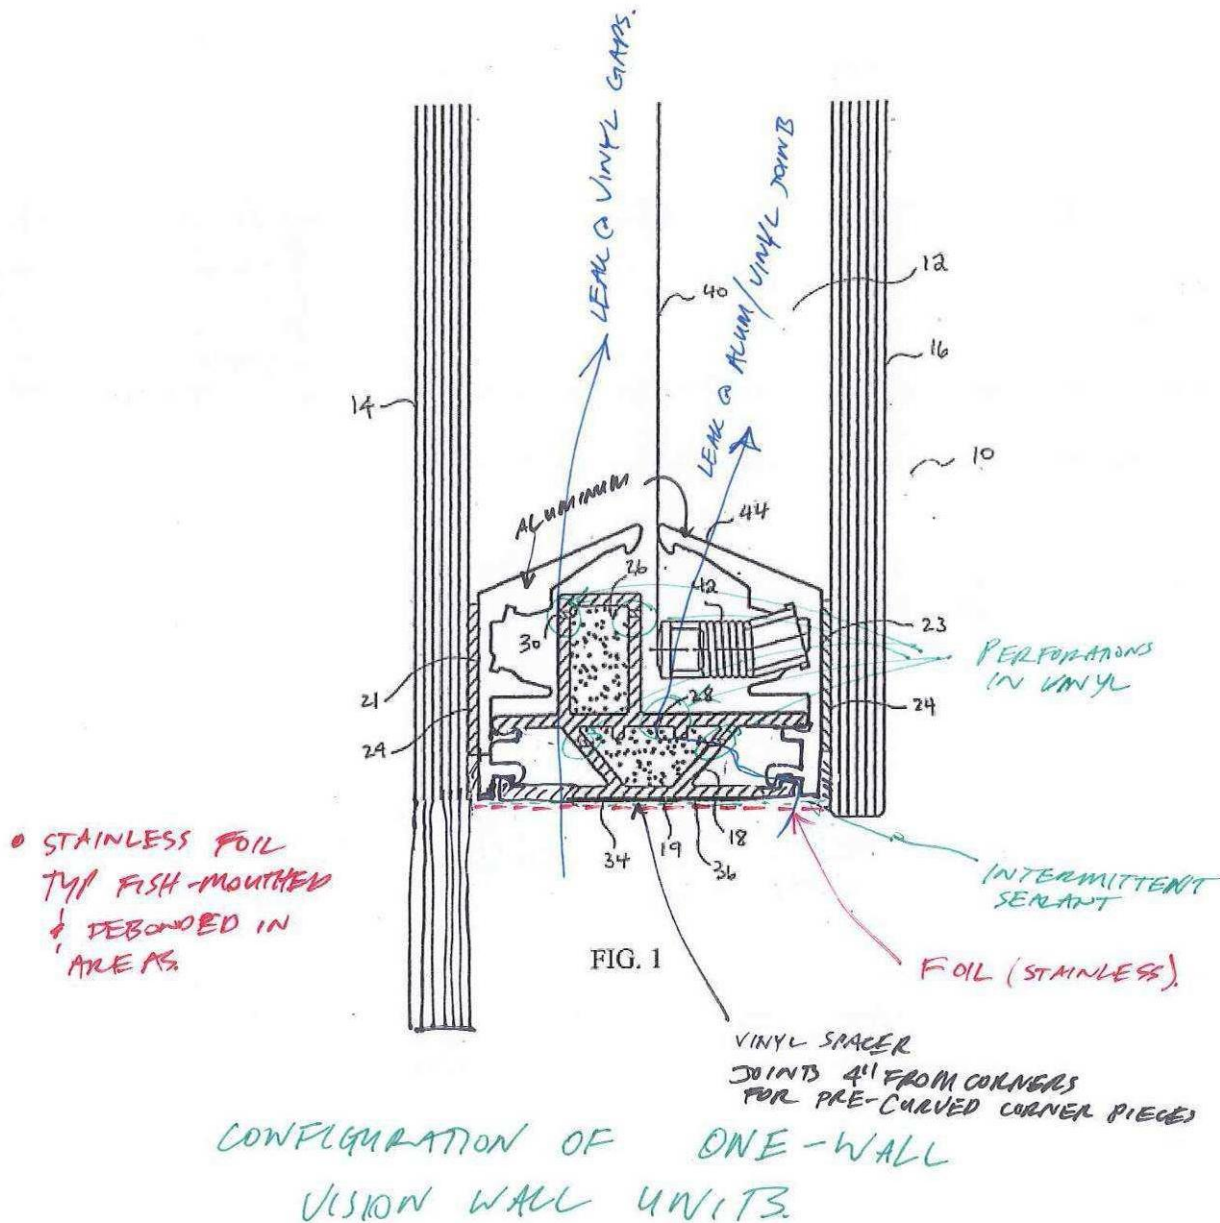 LEAK @ VINYL GAPS.
LEAK @ ALUM/VINYL JOINTS
12
40
16
14
10
ALUMINUM
44
26
42
30
23
PERFORATIONS
IN VINYL
21
28
24
29
34
19
18
36
• STAINLESS FOIL
TYP FISH-MOUTHED
& DEBONDED IN
AREAS.
INTERMITTENT
SEALANT
FIG. 1
FOIL (STAINLESS).
VINYL SPACER
JOINTS 4" FROM CORNERS
FOR PRE-CURVED CORNER PIECES
CONFIGURATION OF ONE-WALL
VISION WALL UNITS.